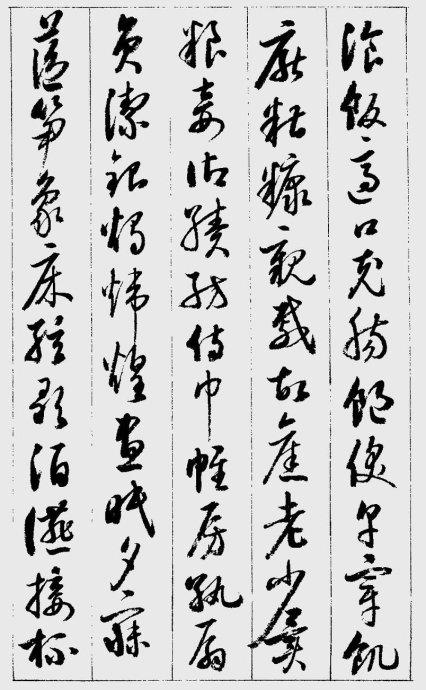 飡飯適口充腸飽飫烹宰飢
厭糟糠親戚故舊老少異
粮妾御績紡侍巾帷房紈扇
員潔銀燭煒煌晝眠夕寐
藍笋象床絃歌酒讌接杯